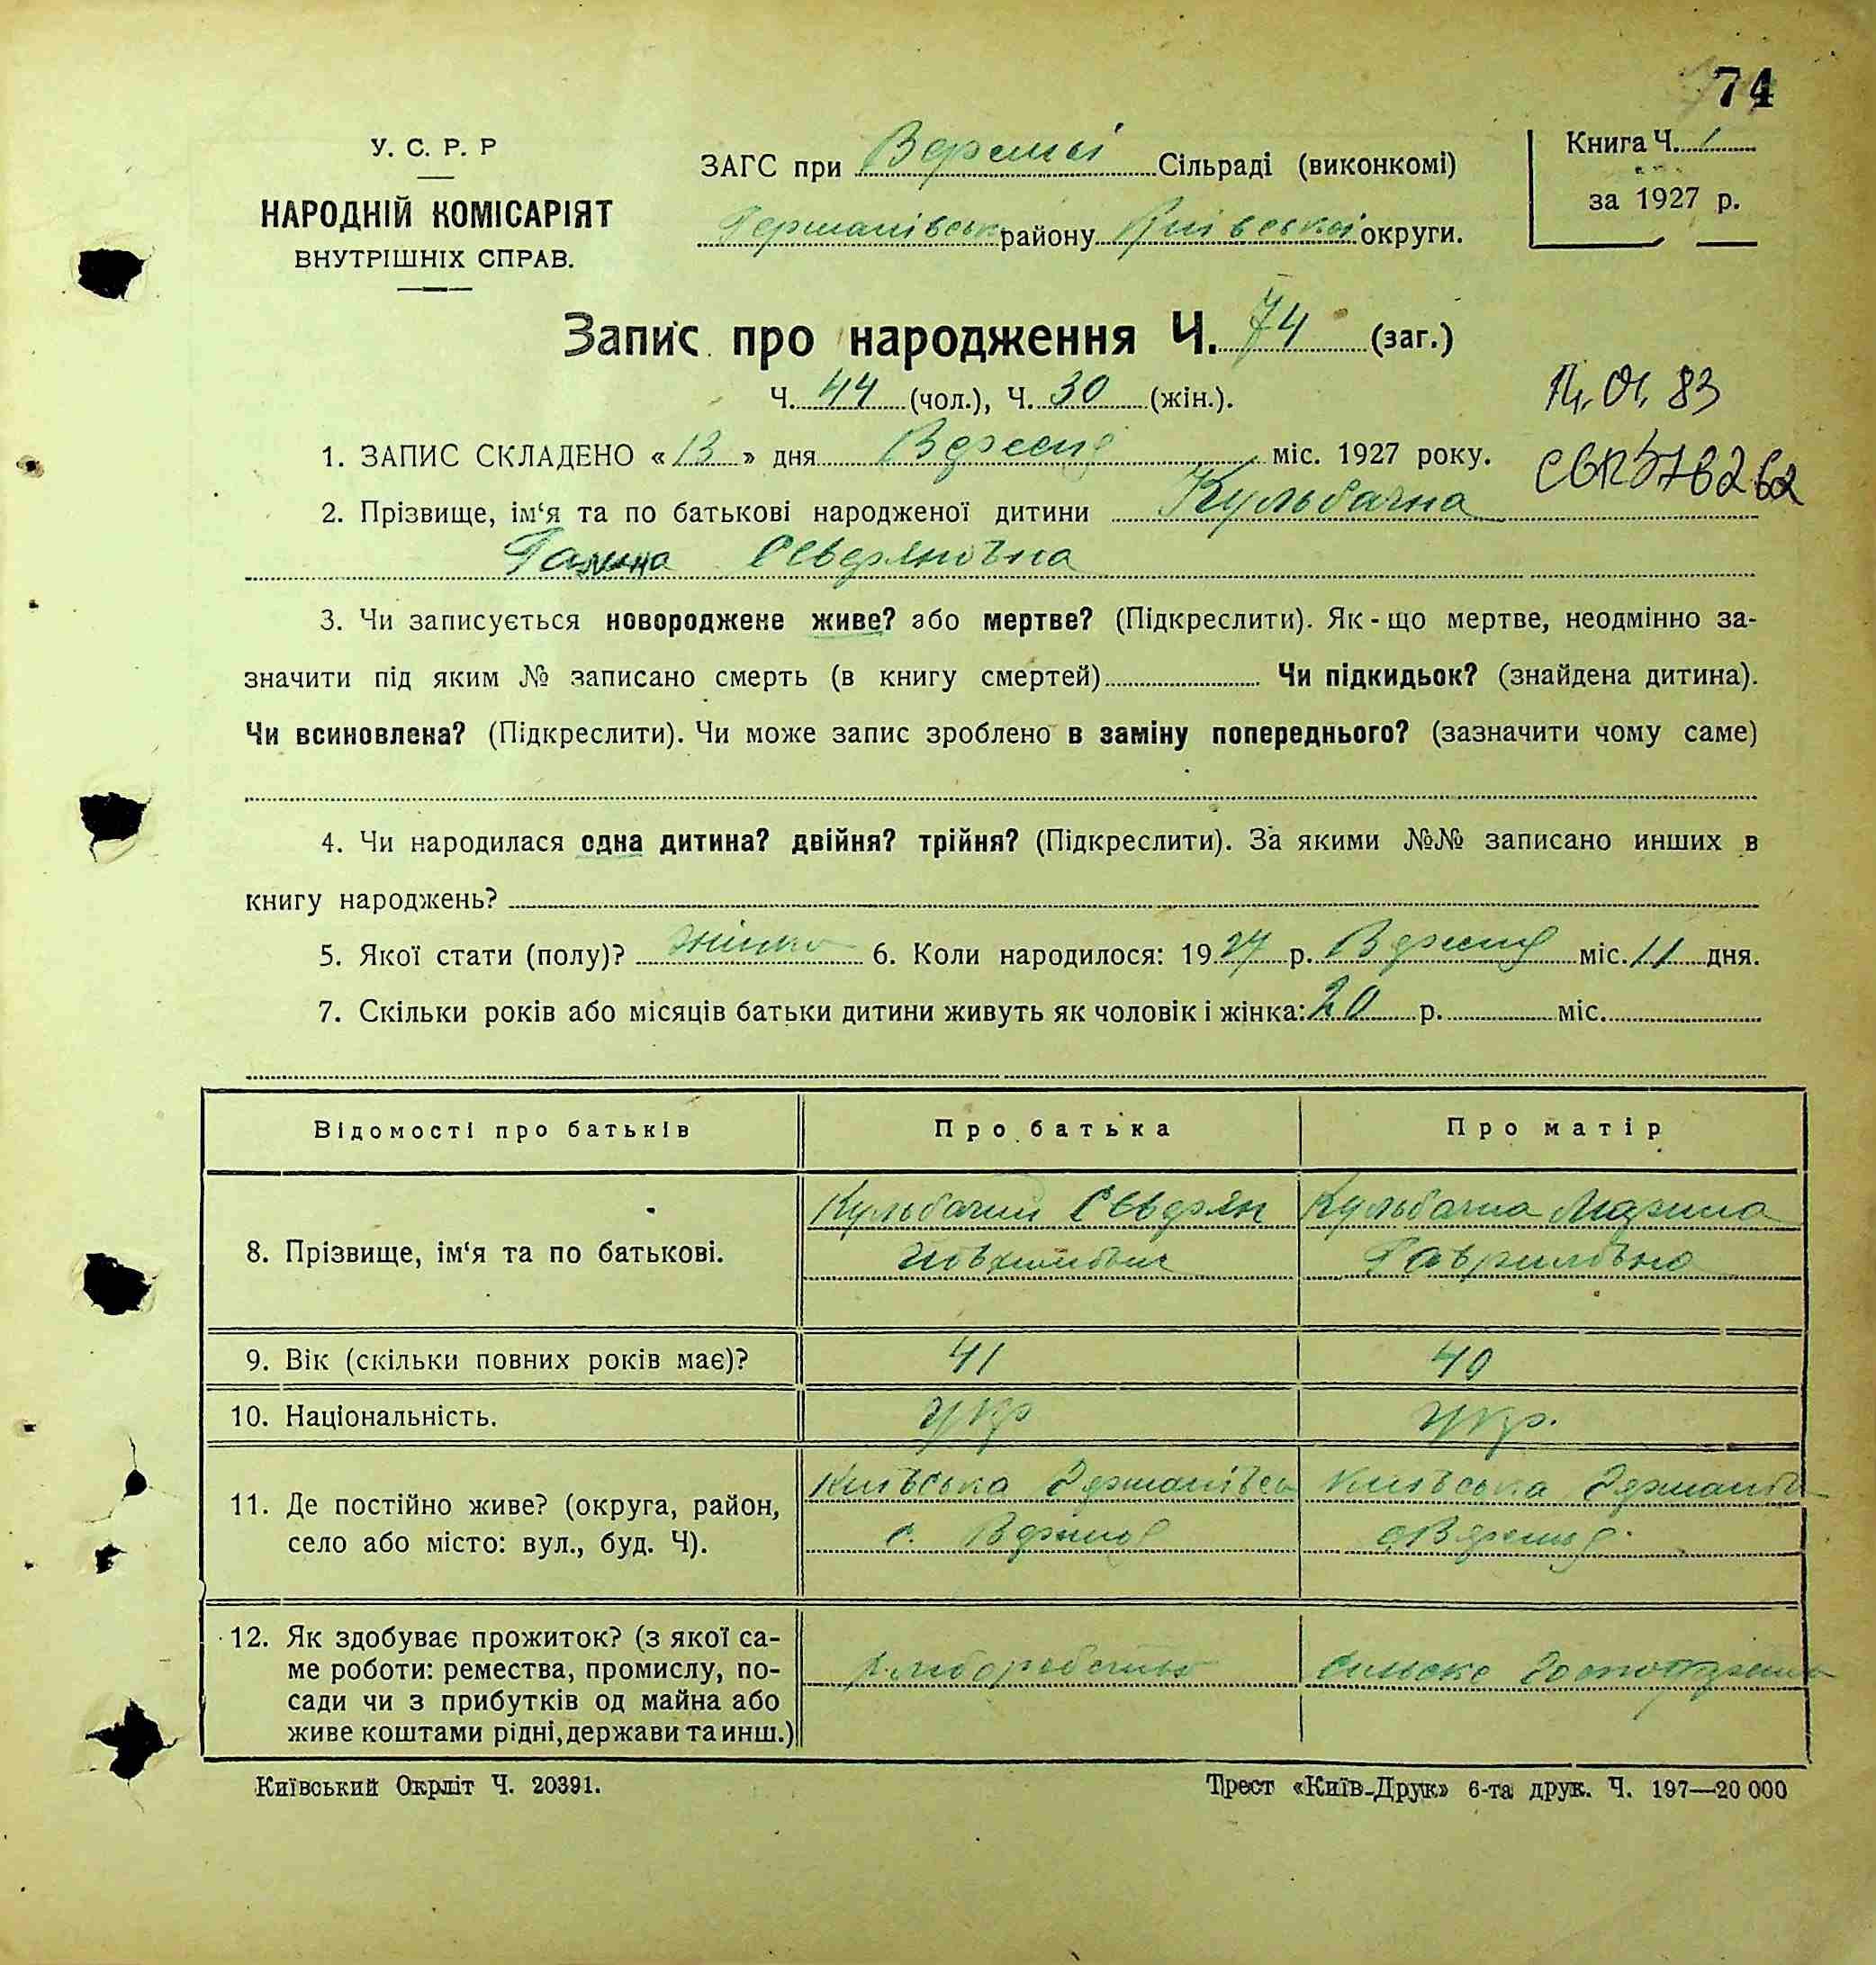 74
У. С. Р. Р
НАРОДНІЙ КОМІСАРІЯТ
ВНУТРІШНІХ СПРАВ.
ЗАГС при Сільраді (виконкомі)
Германівськ району Київської округи.
Книга Ч. 1
за 1927 р.
Запис про народження Ч. 74 (заг.)
Ч. 44 (чол.), Ч. 30 (жін.).
14.01.83
1. ЗАПИС СКЛАДЕНО «13» дня Вересня міс. 1927 року.
2. Прізвище, ім‘я та по батькові народженої дитини Кульбачна
Галина Євдряновна
3. Чи записується новороджене живе? або мертве? (Підкреслити). Як-що мертве, неодмінно за-
значити під яким № записано смерть (в книгу смертей) Чи підкидьок? (знайдена дитина).
Чи всиновлена? (Підкреслити). Чи може запис зроблено в заміну попереднього? (зазначити чому саме)
4. Чи народилася одна дитина? двійня? трійня? (Підкреслити). За якими №№ записано инших в
книгу народжень?
5. Якої стати (полу)? 6. Коли народилося: 1927 р. Вересня міс. 11 дня.
7. Скільки років або місяців батьки дитини живуть як чоловік і жінка: 20 р. міс.
Відомості про батьків Про батька Про матір
8. Прізвище, ім‘я та по батькові.
Кульбачний Євдрян
Кульбачна Марина
Гавриловна
9. Вік (скільки повних років має)? 41 40
10. Національність. укр укр.
11. Де постійно живе? (округа, район,
село або місто: вул., буд. Ч).
Київська Германівсь
с.
Київська Германів
12. Як здобуває прожиток? (з якої са-
ме роботи: ремества, промислу, по-
сади чи з прибутків од майна або
живе коштами рідні, держави та инш.)
хлеборобство
сильске
Київський Окрліт Ч. 20391.
Трест «Київ-Друк» 6-та друк. Ч. 197—20 000